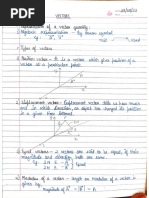 VECTORS
Representation of a vector quantity :
Symbolic Representation - By arrow symbol
eg :- A⃗ , V⃗
Types of vectors
Position vector - It is a vector which gives position of
a vector in a particular point.
Displacement vector - Displacement vector tells us how much
and in which direction, an object has changed its
position in given interval of time.
Equal vectors - 2 vectors are said to be equal, if their
magnitude and directions both are same.
Modulus of a vector - length or modulus of a vector is
given by
magnitude of A⃗ = |A⃗| = A